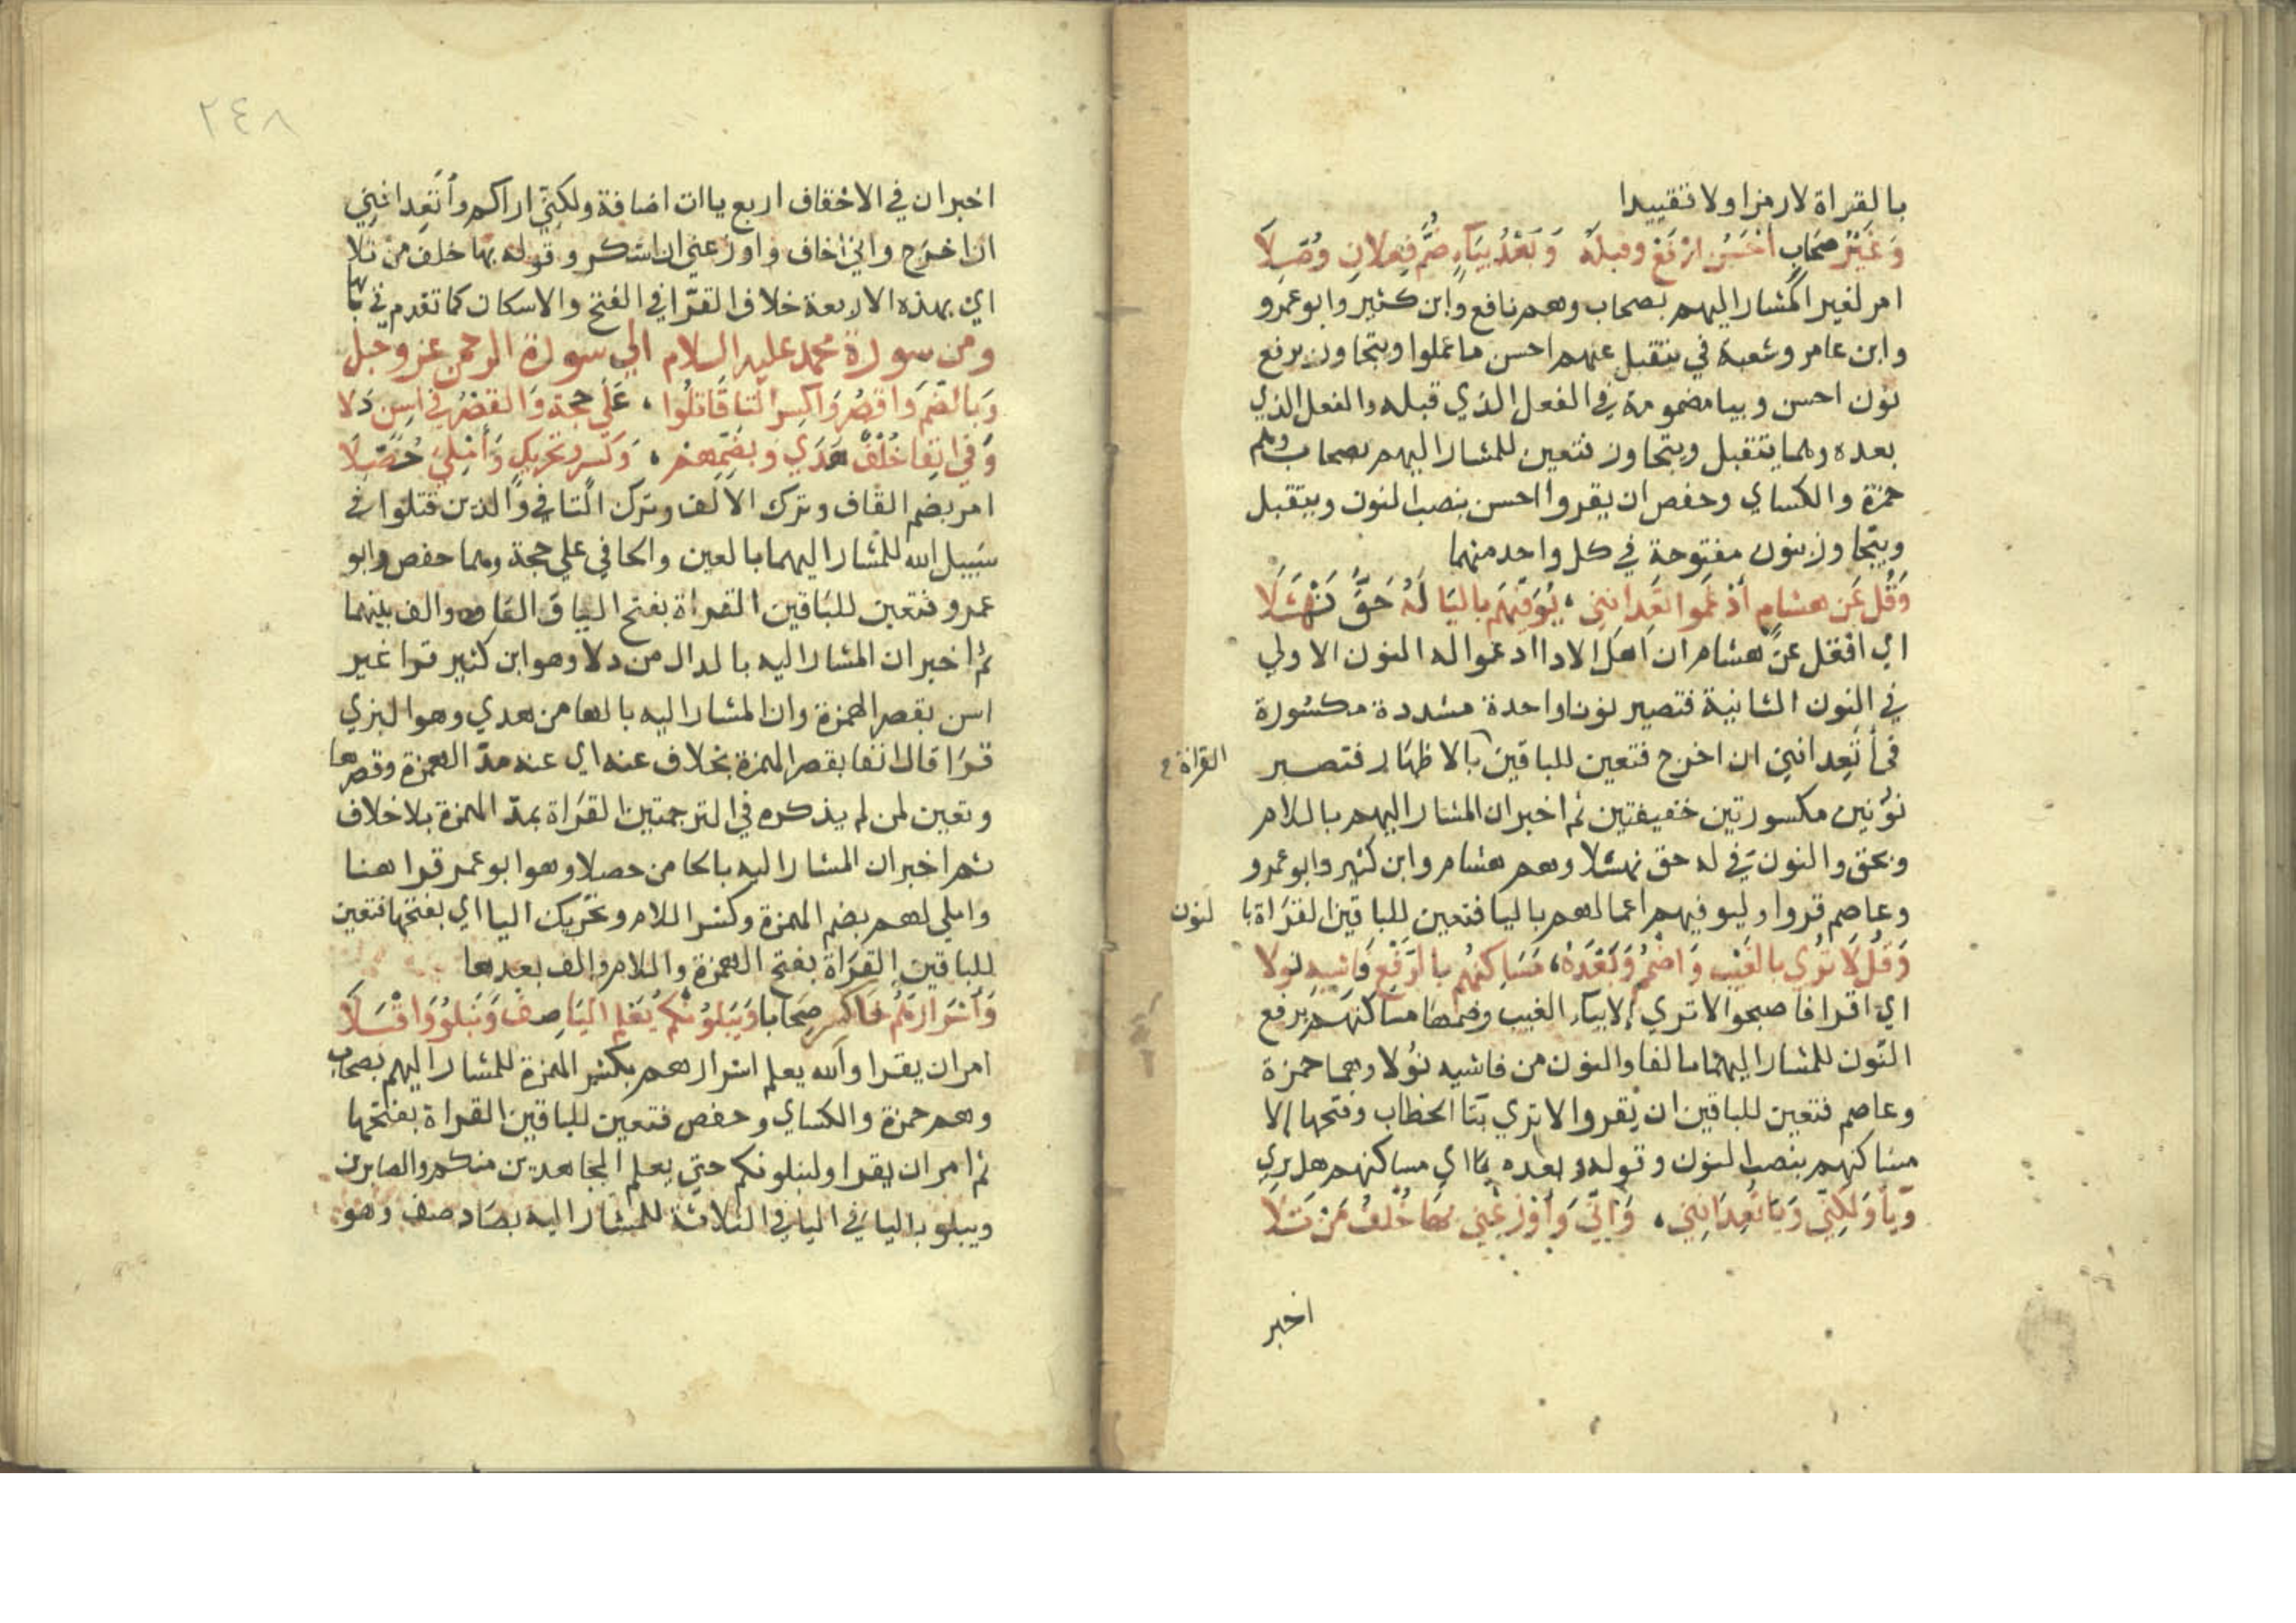 بالقراة لا رمزا ولا تقييدا
وَغَيْرُ صِحَابٍ أَحْسَنُ ارْفَعْ وقبلَهُ وَبَعْدُ بِيَاءٍ ضُمَّ فِعْلانِ وُصِلَا
امر لغير المشار اليهم بصحاب وهم نافع وابن كثير وابو عمرو
وابن عامر وشعبة في يتقبل عنهم احسن ما عملوا ويتجاوز برفع
نون احسن وبيا مضمومة في الفعل الذي قبله والفعل الذي
بعده وهما يتقبل ويتجاوز فتعين للمشار اليهم بصحاب وهم
حمزة والكساي وحفص ان يقروا احسن بنصب النون وبيتقبل
ويتجاوز بنون مفتوحة في كل واحد منهما
وَقُل عَن هشامٍ أدْغَموا تَعِدَانِنِي ، يُوَفِّيَهُم باليَا لَهُ حَقُّ نَهْشَلَا
اي انقل عن هشام ان اهل الادا ادغموا له النون الاولي
في النون الثانية فتصير نونا واحدة مشددة مكسورة
في أتعدانني ان اخرج فتعين للباقين بالاظهار فتصير
القراة
نونين مكسورتين خفيفتين ثم اخبر ان المشار اليهم باللام
وبحق والنون في له حق نهشلا وهم هشام وابن كثير وابو عمرو
وعاصم قروا وليوفيهم اعمالهم باليا فتعين للباقين القراة با لنون
وَقُل لَا تُرَي بالغَيْبِ وَاضْمُمْ وَبَعْدَهُ ، مَسَاكِنُهُم بالرَّفْعِ فَاشِيهِ نولا
اي اقرا فاصبحوا لا تري إلا بياء الغيب وضمها مساكنهم برفع
النون للمشار اليهما بالفا والنون من فاشيه نولا وهما حمزة
وعاصم فتعين للباقين ان يقروا لا تري بتا الخطاب وفتحها إلا
مساكنهم بنصب النون وقوله وبعده اي مساكنهم هل يري
وَيَا وَلَكِنِّي وَيَا تَعِدَانِنِي ، وَإِنِّي وَأَوْزِعْنِي بهَا خُلْفُ مَنْ تَلَا
اخبر
٢٤٨
اخبر ان في الاحقاف اربع ياات اضافة ولكنّي اراكم وأتَعِدانِنِي
ان اخرج واني اخاف واوزعني ان اشكر وقوله بها خلف من تلا
اي بهذه الاربعة خلاف القرّا في الفتح والاسكان كما تقدم في بابها
ومن سورة محمد عليه السلام الي سورة الرحمن عز وجل
وَبِالضَّم وَاقصُر وَاكسِر التّا قَاتلُوا ، عَلَي حجة وَالقَصْرُ في اسِنٍ دَلا
وَفي انِفا خُلْفٌ هَدَي وبِضَمِّهم ، وَكَسرٍ وتحريكٍ وَأُمْلِيَ حُصِّلَا
امر بضم القاف وترك الالف وترك التا في والذين قتلوا في
سبيل الله للمشار اليهما بالعين والحا في علي حجة وهما حفص وابو
عمرو فتعين للباقين القراة بفتح اليا والف بينهما
ثم اخبر ان المشار اليه بالدال من دلا وهو ابن كثير قرا غير
اسن بقصر الهمزة وان المشار اليه بالها من هدي وهو البزي
قرا قال انفا بقصر الهمزة بخلاف عنه اي عنه مدّ الهمزة وقصرها
وتعين لمن لم يذكره في الترجمتين القراة بمدّ الهمزة بلا خلاف
ثم اخبر ان المشار اليه بالحا من حصلا وهو ابو عمر قرا هنا
واملي لهم بضم الهمزة وكسر اللام وتحريك اليا اي بفتحها فتعين
للباقين القراة بفتح الهمزة واللام والف بعدها
وَأَسْرَارَهُم فَاكسِر صِحَابا وَيَبْلُوَنَّكُم يَعْلَمِ اليَا صِفْ وَيَبْلُوَ وَاقْبَلَا
امر ان يقرا والله يعلم اسرارهم بكسر الهمزة للمشار اليهم بصحاب
وهم حمزة والكساي وحفص فتعين للباقين القراة بفتحها
ثم امر ان يقرا ولنبلونكم حتي يعلم المجاهدين منكم والصابرين
ويبلو باليا في اليا في الثلاثة للمشار اليه بصاد صف وهو